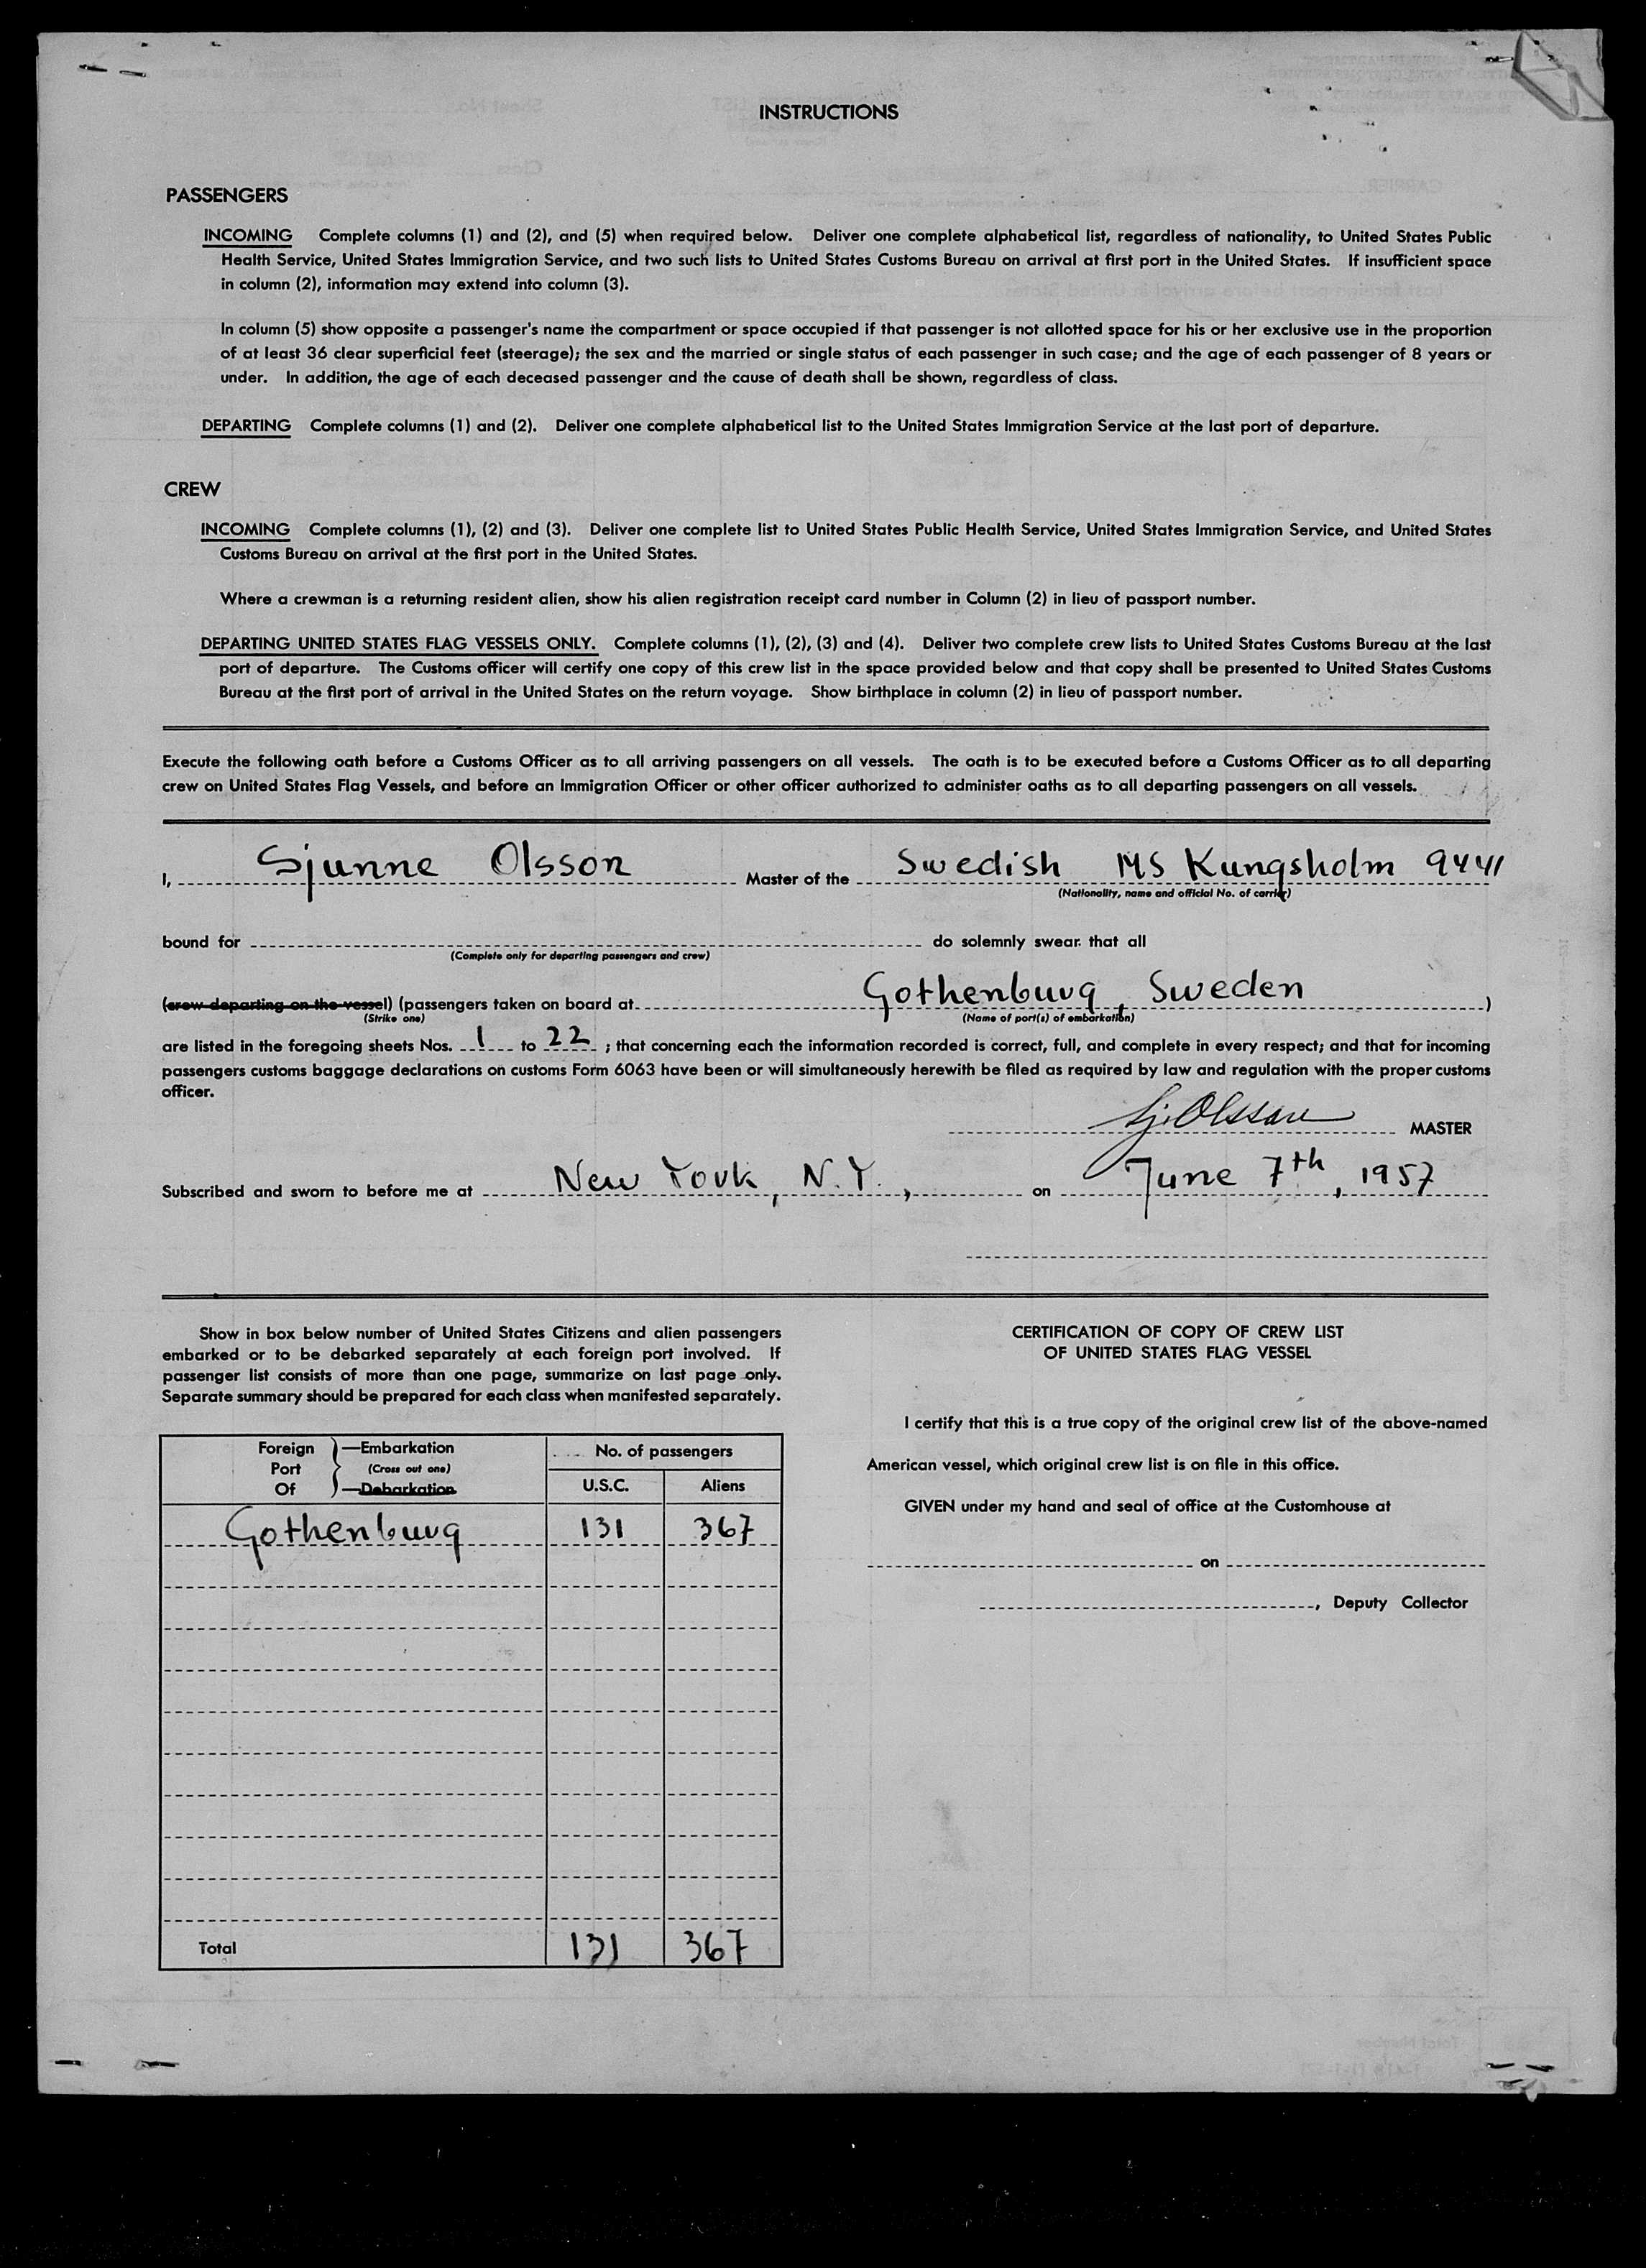 INSTRUCTIONS
PASSENGERS
INCOMING Complete columns (1) and (2), and (5) when required below. Deliver one complete alphabetical list, regardless of nationality, to United States Public
Health Service, United States Immigration Service, and two such lists to United States Customs Bureau on arrival at first port in the United States. If insufficient space
in column (2), information may extend into column (3).
In column (5) show opposite a passenger's name the compartment or space occupied if that passenger is not allotted space for his or her exclusive use in the proportion
of at least 36 clear superficial feet (steerage); the sex and the married or single status of each passenger in such case; and the age of each passenger of 8 years or
under. In addition, the age of each deceased passenger and the cause of death shall be shown, regardless of class.
DEPARTING Complete columns (1) and (2). Deliver one complete alphabetical list to the United States Immigration Service at the last port of departure.
CREW
INCOMING Complete columns (1), (2) and (3). Deliver one complete list to United States Public Health Service, United States Immigration Service, and United States
Customs Bureau on arrival at the first port in the United States.
Where a crewman is a returning resident alien, show his alien registration receipt card number in Column (2) in lieu of passport number.
DEPARTING UNITED STATES FLAG VESSELS ONLY. Complete columns (1), (2), (3) and (4). Deliver two complete crew lists to United States Customs Bureau at the last
port of departure. The Customs officer will certify one copy of this crew list in the space provided below and that copy shall be presented to United States Customs
Bureau at the first port of arrival in the United States on the return voyage. Show birthplace in column (2) in lieu of passport number.
Execute the following oath before a Customs Officer as to all arriving passengers on all vessels. The oath is to be executed before a Customs Officer as to all departing
crew on United States Flag Vessels, and before an Immigration Officer or other officer authorized to administer oaths as to all departing passengers on all vessels.
I, Sjunne Olsson Master of the Swedish MS Kungsholm 9441
(Nationality, name and official No. of carrier)
bound for do solemnly swear that all
(Complete only for departing passengers and crew)
(crew departing on the vessel) (passengers taken on board at Gothenburg, Sweden )
(Strike one) (Name of port(s) of embarkation)
are listed in the foregoing sheets Nos. 1 to 22 ; that concerning each the information recorded is correct, full, and complete in every respect; and that for incoming
passengers customs baggage declarations on customs Form 6063 have been or will simultaneously herewith be filed as required by law and regulation with the proper customs
officer.
Sj. Olsson MASTER
Subscribed and sworn to before me at New York, N.Y., on June 7th, 1957
Show in box below number of United States Citizens and alien passengers
embarked or to be debarked separately at each foreign port involved. If
passenger list consists of more than one page, summarize on last page only.
Separate summary should be prepared for each class when manifested separately.
Foreign —Embarkation No. of passengers
Port (Cross out one)
Of —Debarkation U.S.C. Aliens
Gothenburg 131 367
Total 131 367
CERTIFICATION OF COPY OF CREW LIST
OF UNITED STATES FLAG VESSEL
I certify that this is a true copy of the original crew list of the above-named
American vessel, which original crew list is on file in this office.
GIVEN under my hand and seal of office at the Customhouse at
on
, Deputy Collector